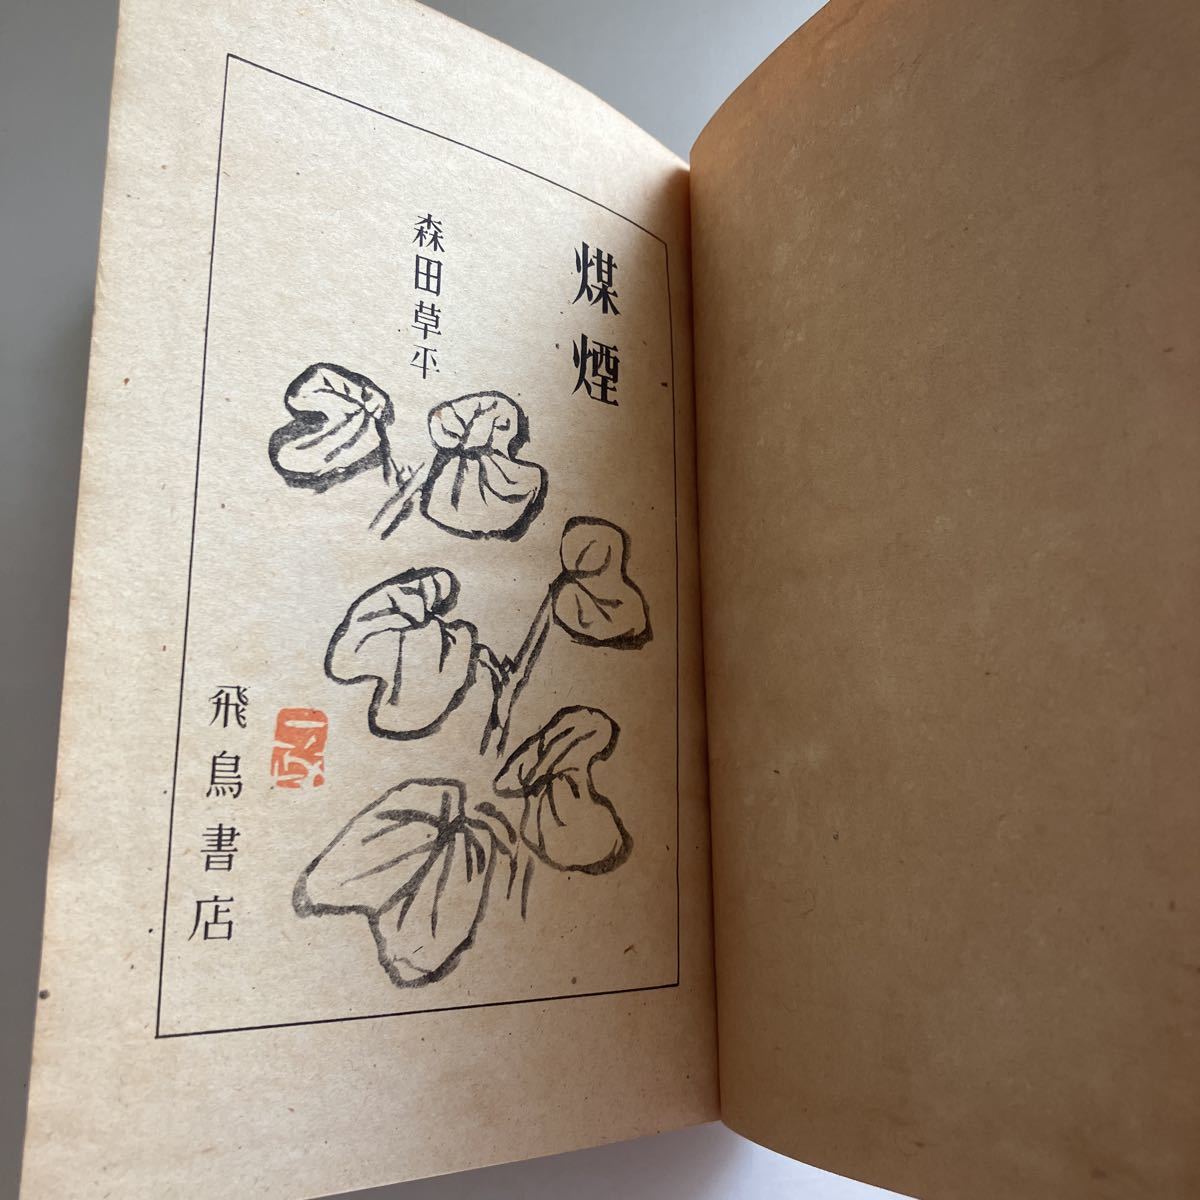 煤煙
森田草平
飛鳥書店